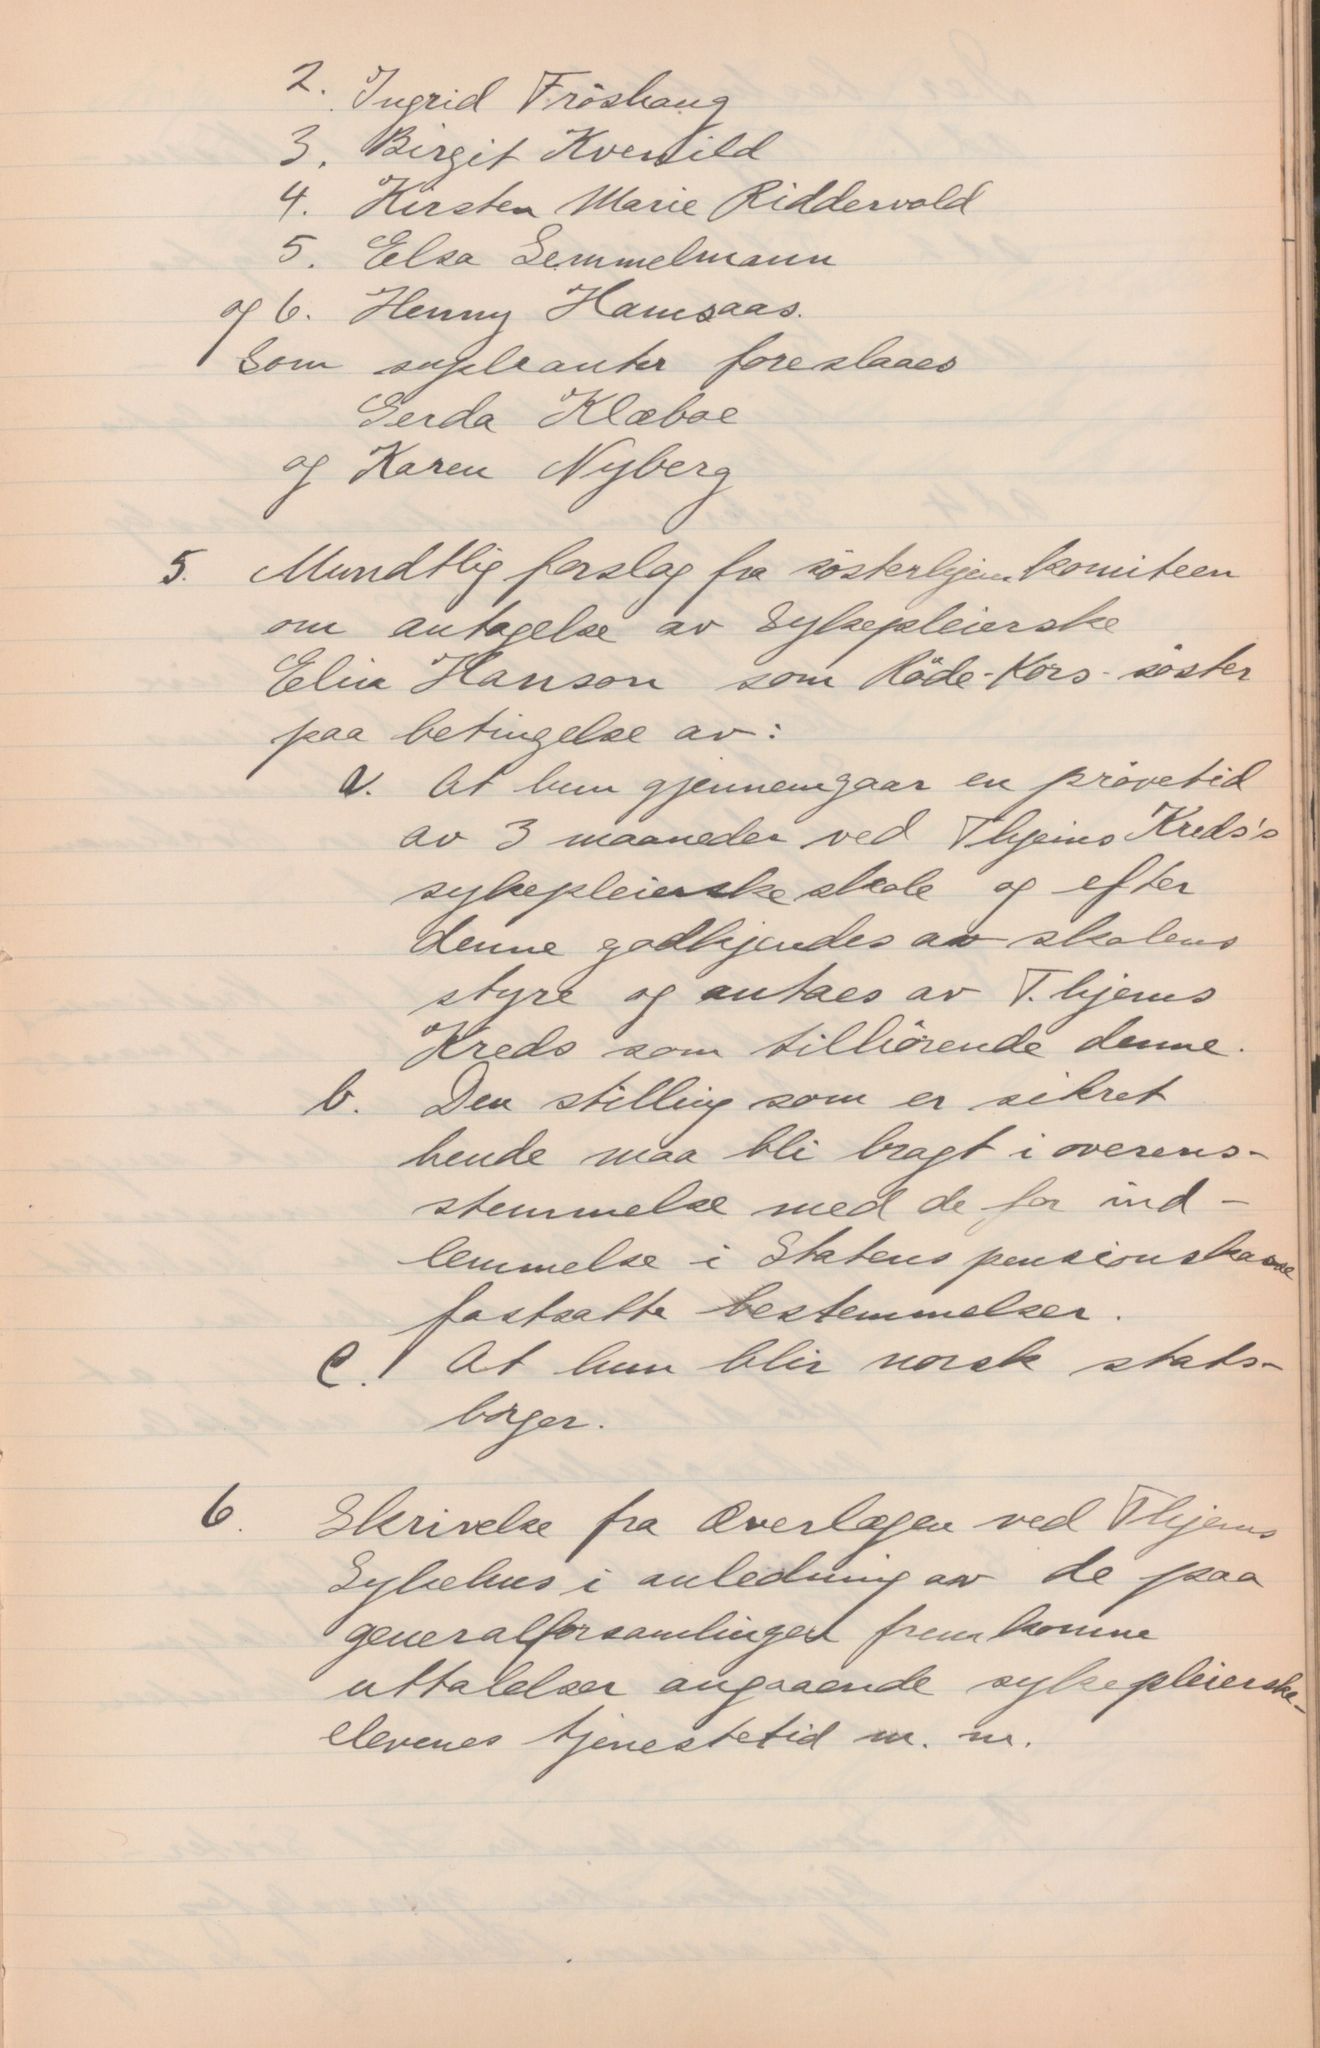 2. Ingrid Fröshaug
3. Birgit Kvenild
4. Kirsten Marie Riddervold
5. Elsa Semmelmann
og 6. Henny Hamsaas.
Som supleanter foreslaaes
Gerda Klæboe
og Karen Nyberg
5. Mundtlig forslag fra søsterhjemkomiteen
om antagelse av Sykepleierske
Elin Hanson som Röde-Kors-søster
paa betingelse av:
a. At hun gjennemgaar en prøvetid
av 3 maaneder ved Thjems Kreds's
sykepleierskeskole og efter
denne godkjendes av skolens
styre og antaes av T.hjems
Kreds som tilhörende denne.
b. Den stilling som er sikret
hende maa bli bragt i overens-
stemmelse med de for ind-
lemmelse i Statens pensionskasse
fastsatte bestemmelser.
c. At hun blir norsk stats-
borger.
6. Skrivelse fra Overlægen ved Thjems
Sykehus i anledning av de paa
generalforsamlingen fremkomne
uttalelser angaaende sykepleierske-
elevenes tjenestetid m. m.